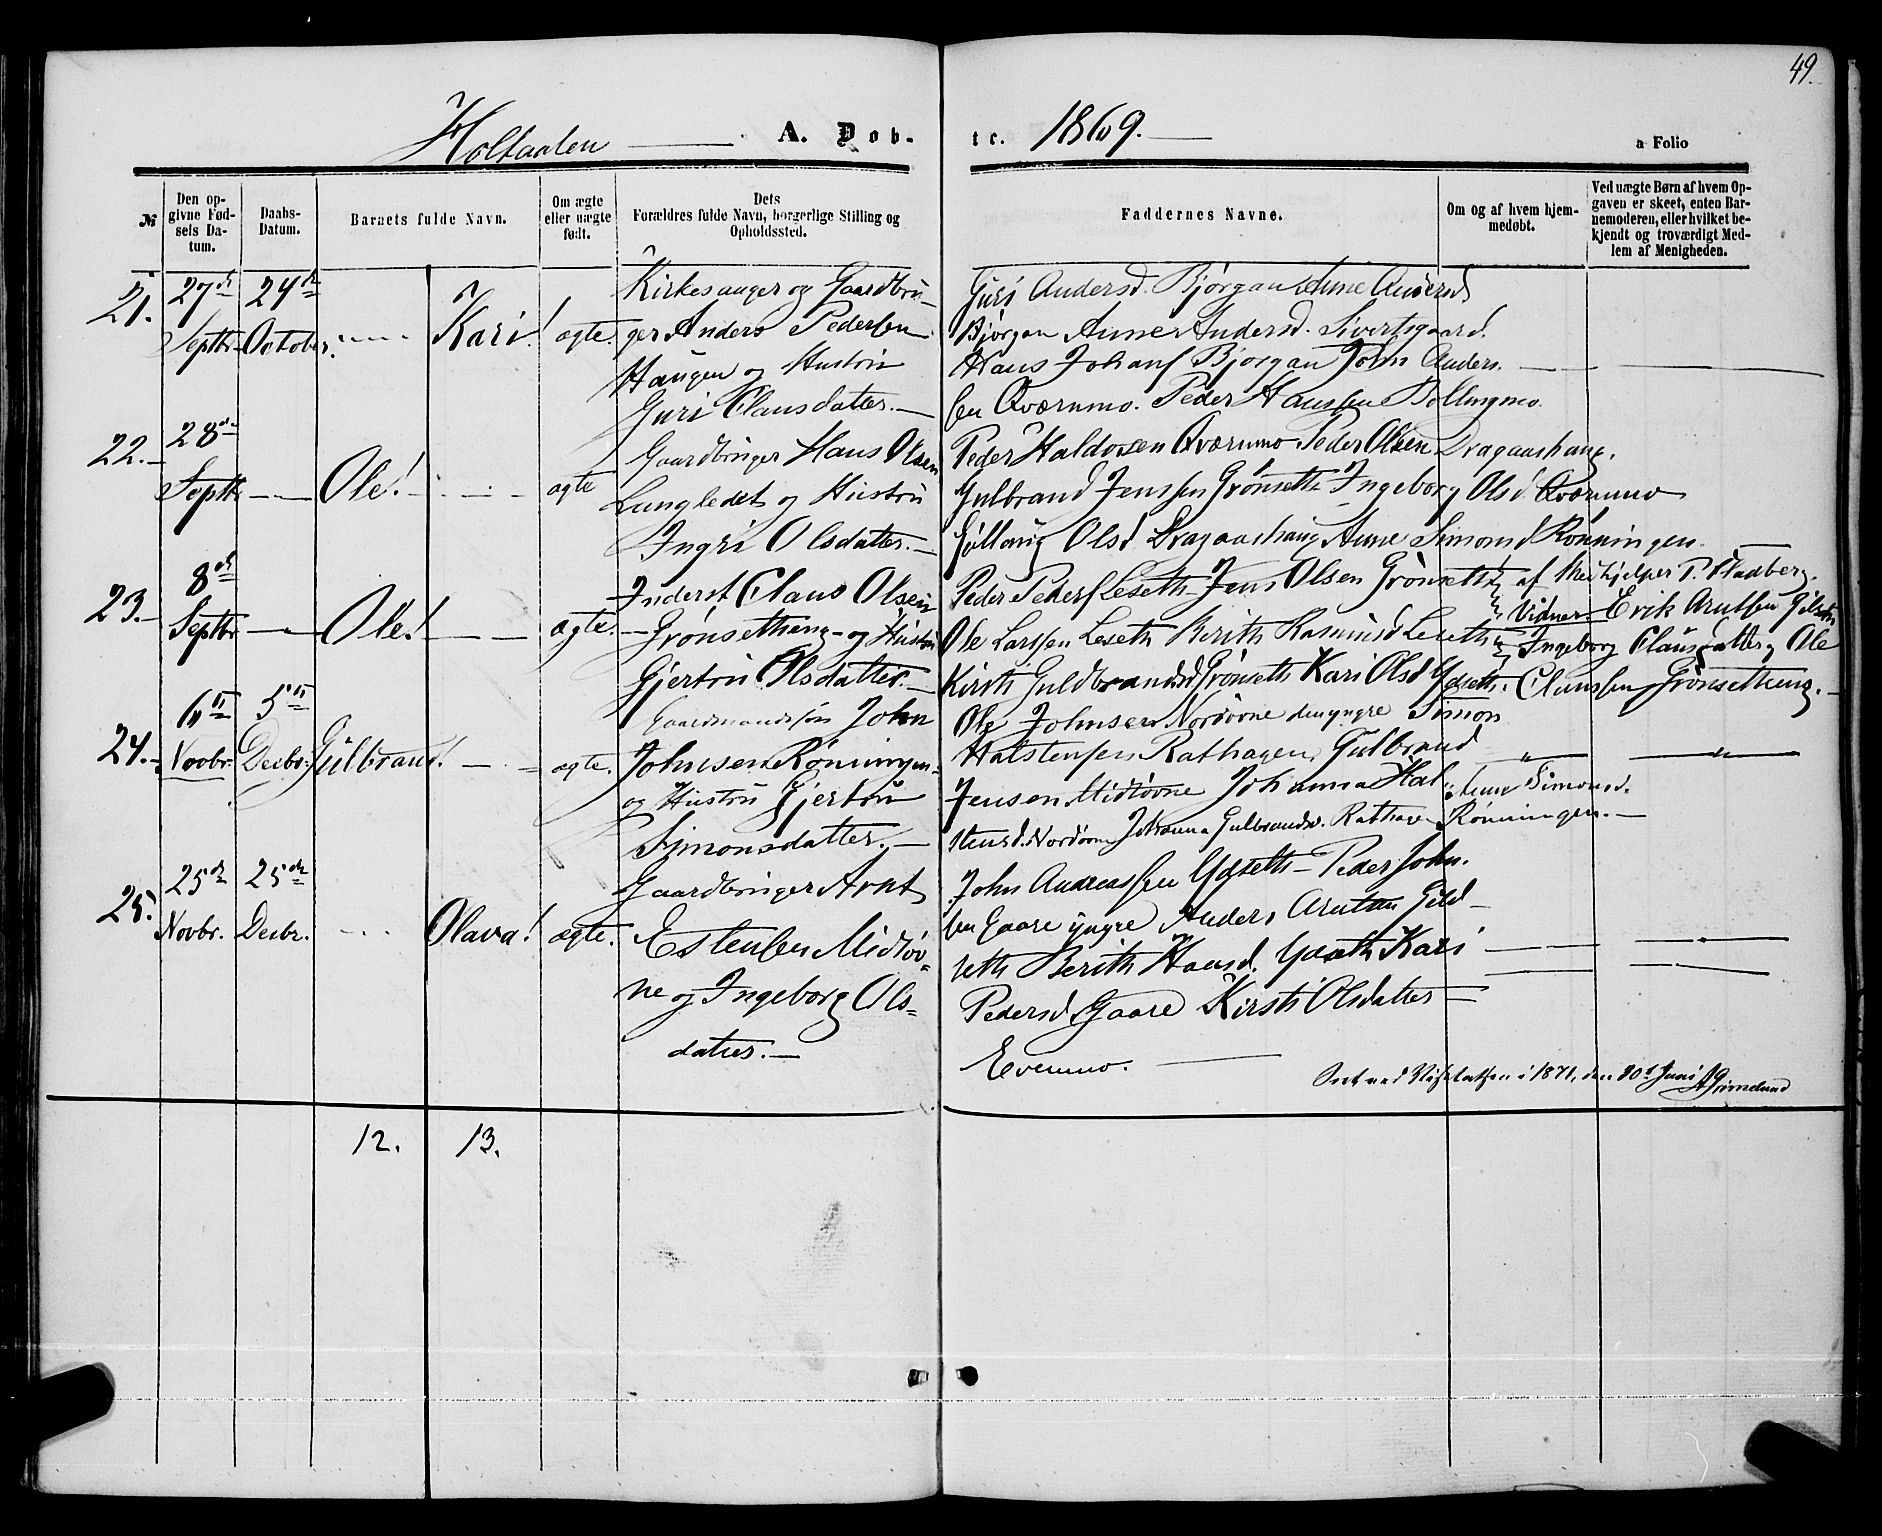 49.
Holtaalen — A. Døb-
te. 1869. —
a Folio
№
Den op-
givne Fød-
sels Da-
tum.
Daabs-
Datum.
Barnets fulde Navn.
Om ægte
eller uægte
født.
Dets
Forældres fulde Navn, borgerlige Stilling og
Opholdssted.
Faddernes Navne.
Om og af hvem hjem-
medøbt.
Ved uægte Børn af hvem Op-
gaven er skeet, enten Bar-
nemoderen, eller hvilket be-
kjendt og troværdigt Med-
lem af Menigheden.
21.
27de
Septbr
24de
October.
Kari!
ægte.
Kirkesanger og Gaardbru-
ger Anders Pedersen
Haugen og Hustru
Guri Clausdatter. —
Guri Andersd. Bjørgan Anne Andersd
Bjørgan Anne Andersd. Sivertsgaard.
Hans Johans Bjørgan John Anders.
sen Qværnmo. Peder Hanssen Bollingmo.
22. —
28de
Septbr
Ole!
ægte
Gaardbruger Hans Olsen
Lungledet og Hustru
Ingri Olsdatter. —
Peder Haldosen Qværnmo Peder Olsen Dragaashaug.
Gulbrand Jenssen Grønseth Ingeborg Olsd. Qværnmo
Sollaug Olsd Dragaashaug Anne Simonsd Rønningen. —
23. —
8de
Septbr
Ole!
ægte.
Inderst Claus Olsen
Grønsetheng og Hustru
Gjertru Olsdatter. —
Peder Peders Leseth Jens Olsen Grønseth
Ole Larssen Leseth Berith Rasmusd Leseth
Kirsti Guldbrandsd Grønseth Kari Olsd Ydseth.
af Medhjelper P. Fladberg.
Vidner Erik Arntsen Gilseth
Ingeborg Clausdatter og Ole
Clanssen Grønsetheng. —
24. —
6te
Novbr.
5te
Decbr.
Gulbrand!
ægte.
Gaardmandssøn John
Johnsen Rønningen
og Hustru Gjertru
Simonsdatter. —
Ole Johnsen Nordøvne den yngre Simon
Halstensen Rathagen Gulbrand
Jensen Midtøvne Johanna Hal-
stensd. Nordøvne Johanna Gulbrandsd. Rathagen
Anne Simonsd.
Rønningen. —
25.
25de
Novbr.
25de
Decbr.
Olava!
ægte.
Gaardbruger Arnt
Estensen Midtøv-
ne og Ingeborg Ols-
datter. —
John Andreassen Ydseth - Peder John-
sen Gaare yngre Anders Arntsen Gild-
seth Berith Hansd. Ydseth Kari
Pedersd Gaare Kirsti Olsdatter
Evenmo.
Seet ved Visitatsen i 1871, den 30te Juni Grimelund
12.
13.